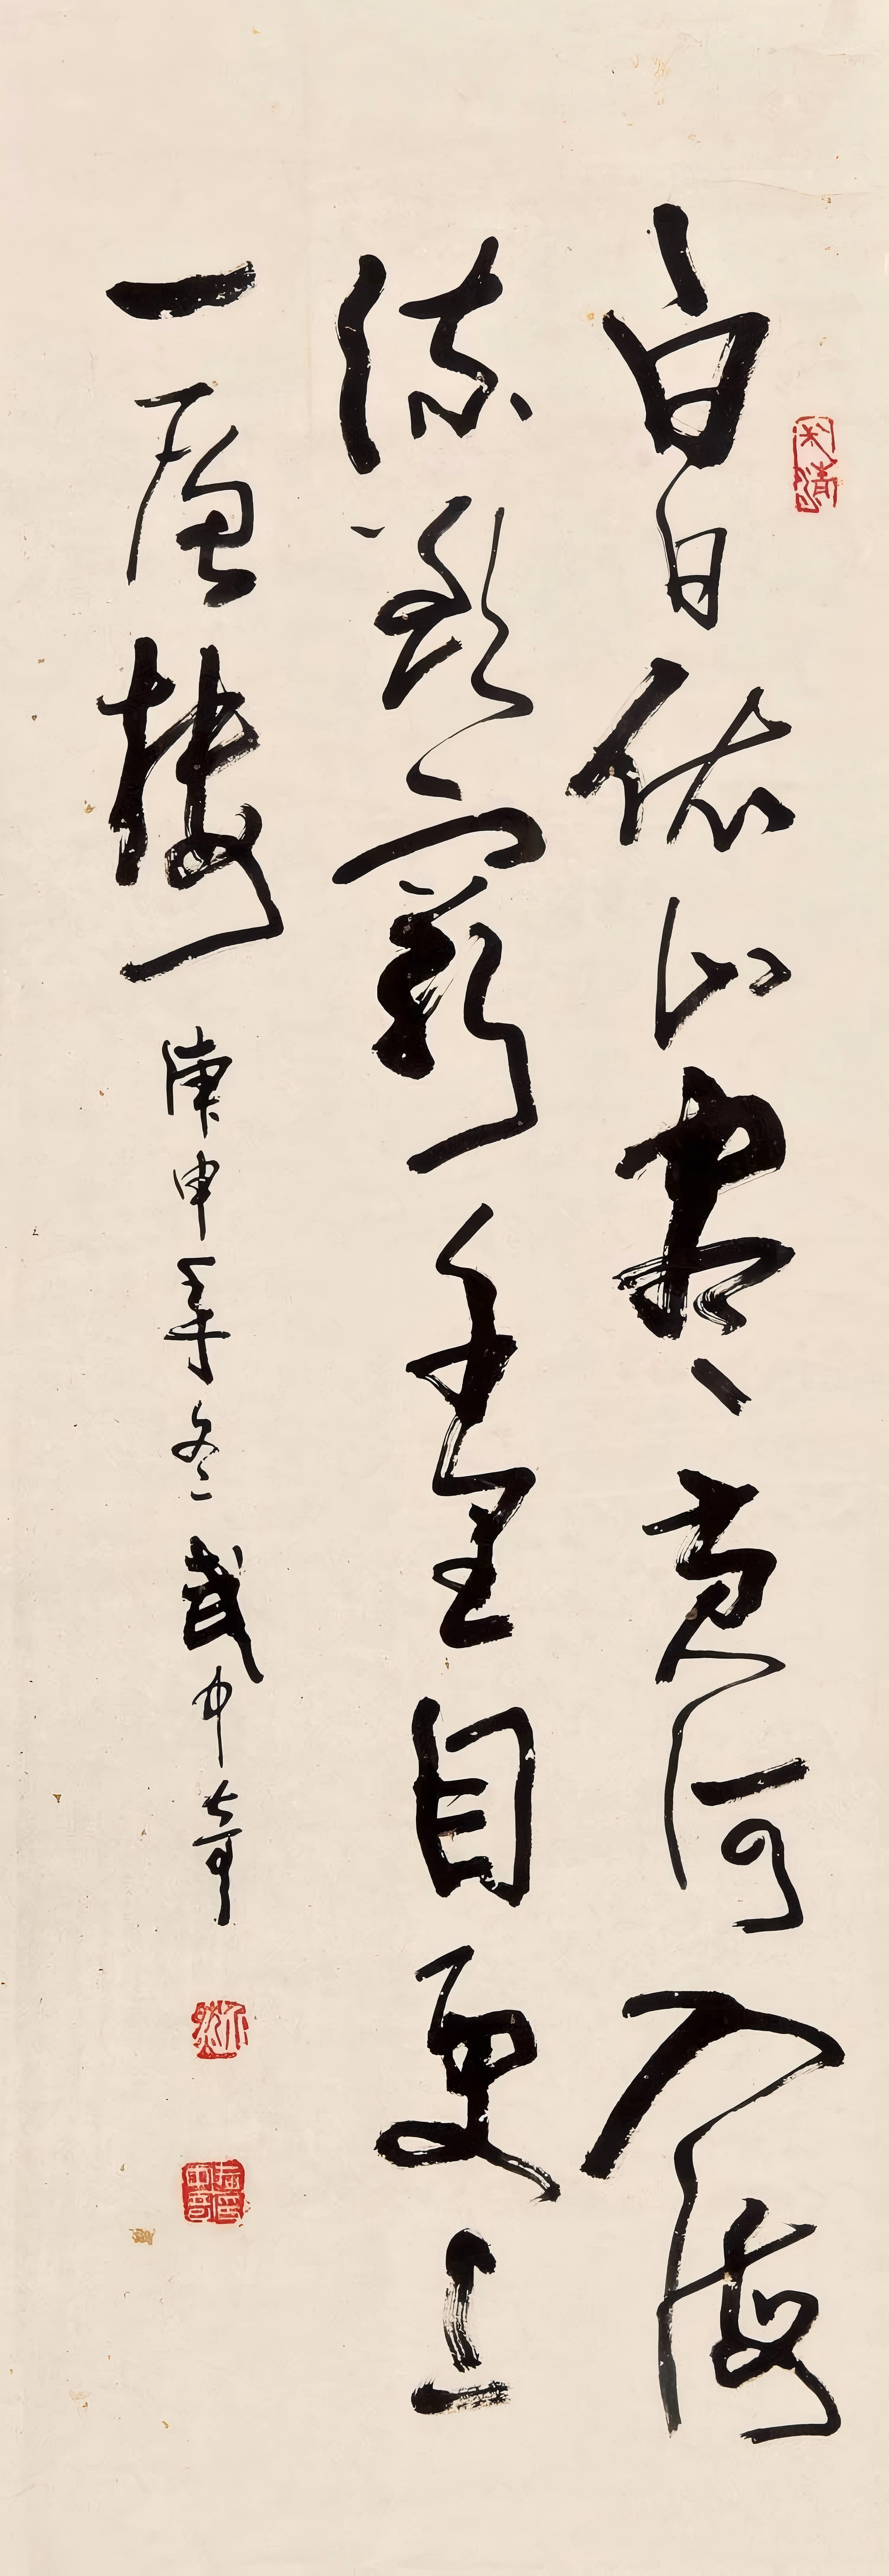 白日依山尽黄河入海
流欲穷千里目更上
一层楼 庚申年冬 武中奇